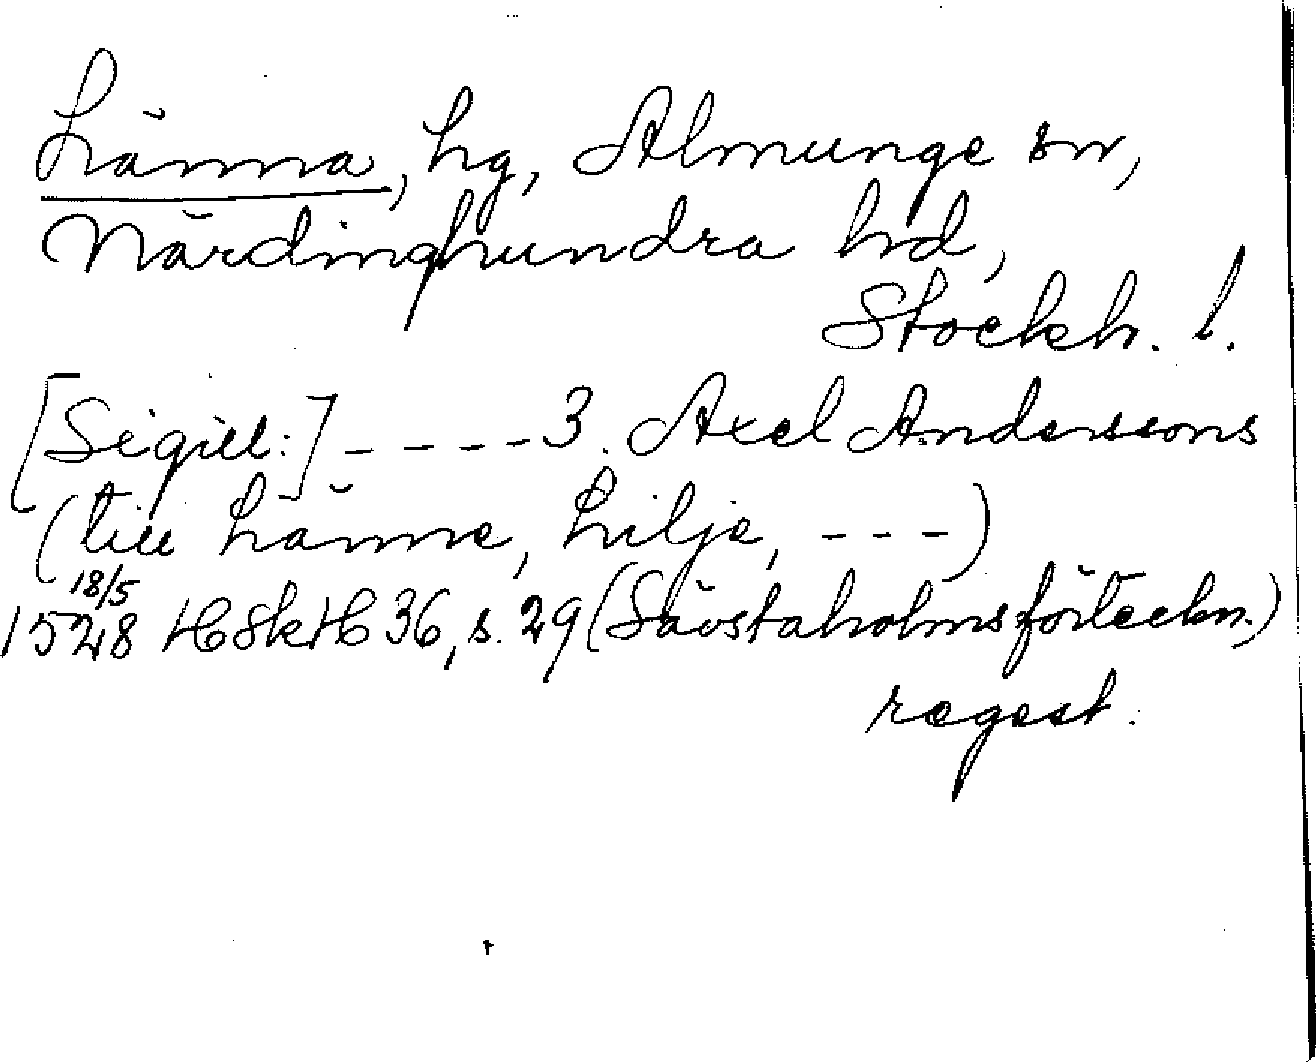 Länna, hg, Almunge sn,
Närdinghundra hd,
Stockh. l.
[Sigill:] - - - - 3. Axel Anderssons
(till Länne, Lilje, - - -)
18/5
1528 HSkH 36, s. 29 (Sävstaholmsförteckn.)
regest.